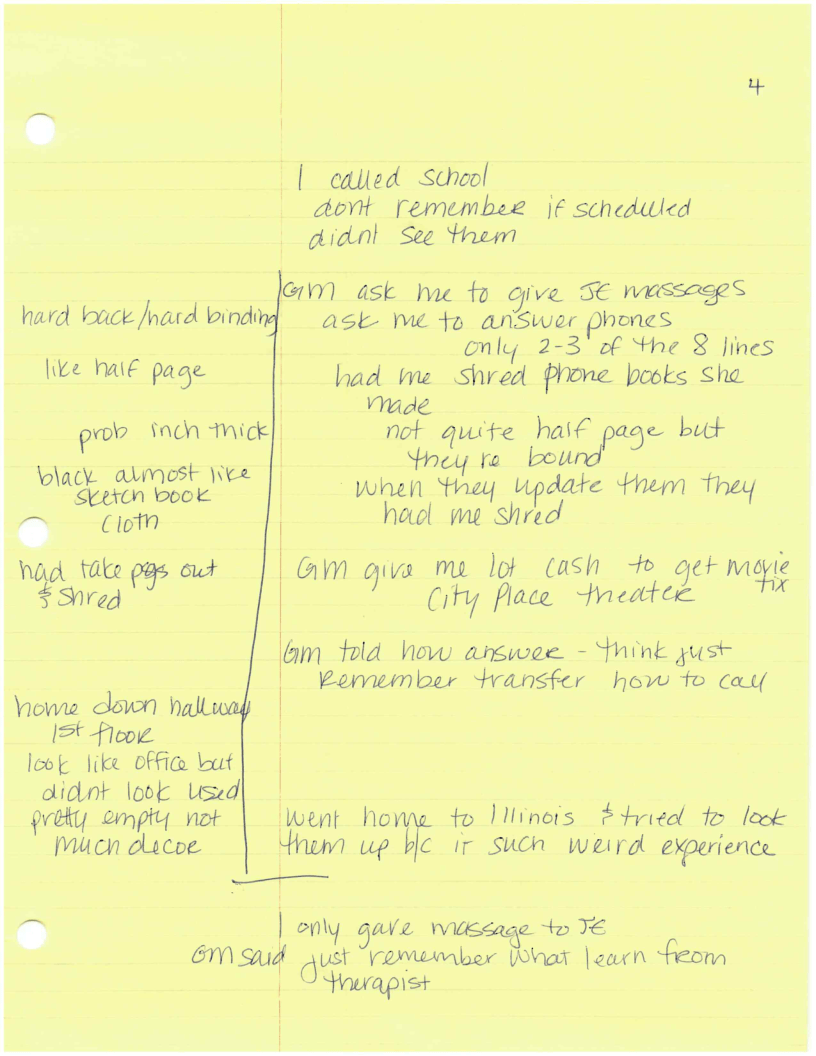 4
I called school
dont remember if scheduled
didnt see them
GM ask me to give JE massages
ask me to answer phones
only 2-3 of the 8 lines
had me shred phone books she
made
not quite half page but
they're bound
when they update them they
had me shred
hard back/hard binding
like half page
prob inch thick
black almost like
sketch book
cloth
had take pgs out
& shred
GM give me lot cash to get movie
tix
City Place theater
GM told how answer - think just
remember transfer how to call
home down hallway
1st floor
look like office but
didnt look used
pretty empty not
much decor
went home to Illinois & tried to look
them up b/c it such weird experience
I only gave massage to JE
GM said just remember what learn from
therapist